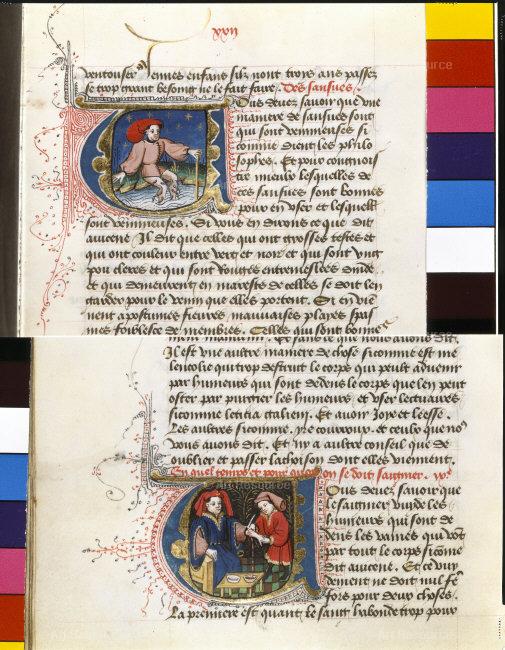 xxii
ventouser Jeunes enfans silz nont trois ans passez
se trop grant besoing ne le fait faire. Des sansues.
Vous deuez sauoir que une
maniere de sansues sont
qui sont venimeuses si
comme dient les philo
sophes. Et pour congnois
tre mieulx lesquelles de
ces sansues sont bonnes
pour en user et lesquelles
sont venimeuses. Si vous en dirons ce que dit
auicene. Il dit que celles qui ont grosses testes et
qui ont couleur entre vert et noir et qui sont ung
pou cleres et qui sont rouges entremeslees dinde
et qui demeurent en marests de celles se doit len
garder pour le venin que elles portent. Si en vie
nent apostumes fieures mauuaises playes spas
mes foiblesce de membres. Celles qui sont bonnes
Et sans ce que nous auons dit.
Il est une aultre maniere de chose sicomme est me
lencolie qui trop destruit le corps qui peult aduenir
par humeurs qui sont dedens le corps que len peut
oster par purgier les humeurs et user lectuaires
sicomme leticia Galieni. Et auoir Joye et leesse.
Les aultres sicomme yre courroux et ceulx que nous
vous auons dit. Et ny a aultre conseil que de
oublier et passer lachoison dont elles viennent.
En quel temps et pour quoy on se doit saigner.
Vous deuez sauoir que
le saignier vuide les
humeurs qui sont de
dens les vaines qui vont
par tout le corps sicome
dit auicene. Et ce vuy
dement ne doit nul fe
fors pour deux choses.
La premiere est quant le sang habonde trop pour